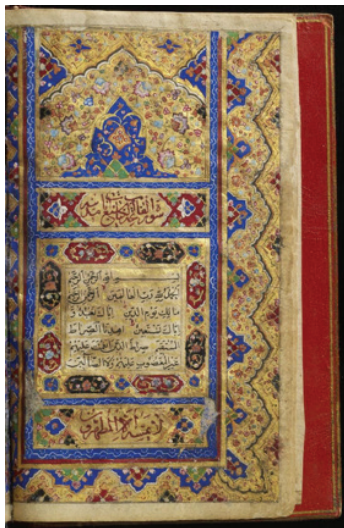 سورة الفاتحة
بسم الله الرحمن الرحيم
الحمد لله رب العالمين الرحمن الرحيم
مالك يوم الدين اياك نعبد و
اياك نستعين اهدنا الصراط
المستقيم صراط الذين انعمت عليهم
غير المغضوب عليهم ولا الضالين
لا يمسه الا المطهرون